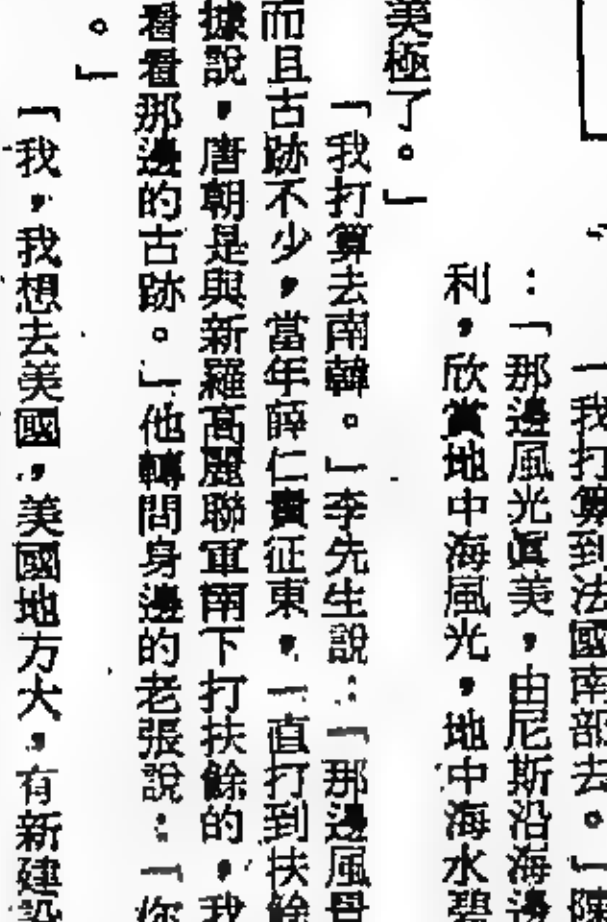 「我打算到法國南部去。」陳
：「那邊風光眞美，由尼斯沿海邊
利，欣賞地中海風光，地中海水碧
美極了。」
「我打算去南韓。」李先生說：「那邊風景
而且古跡不少，當年薛仁貴征東，一直打到扶餘
據說，唐朝是與新羅高麗聯軍南下打扶餘的，我
看看那邊的古跡。」他轉問身邊的老張說：「你
。」
「我，我想去美國，美國地方大，有新建設